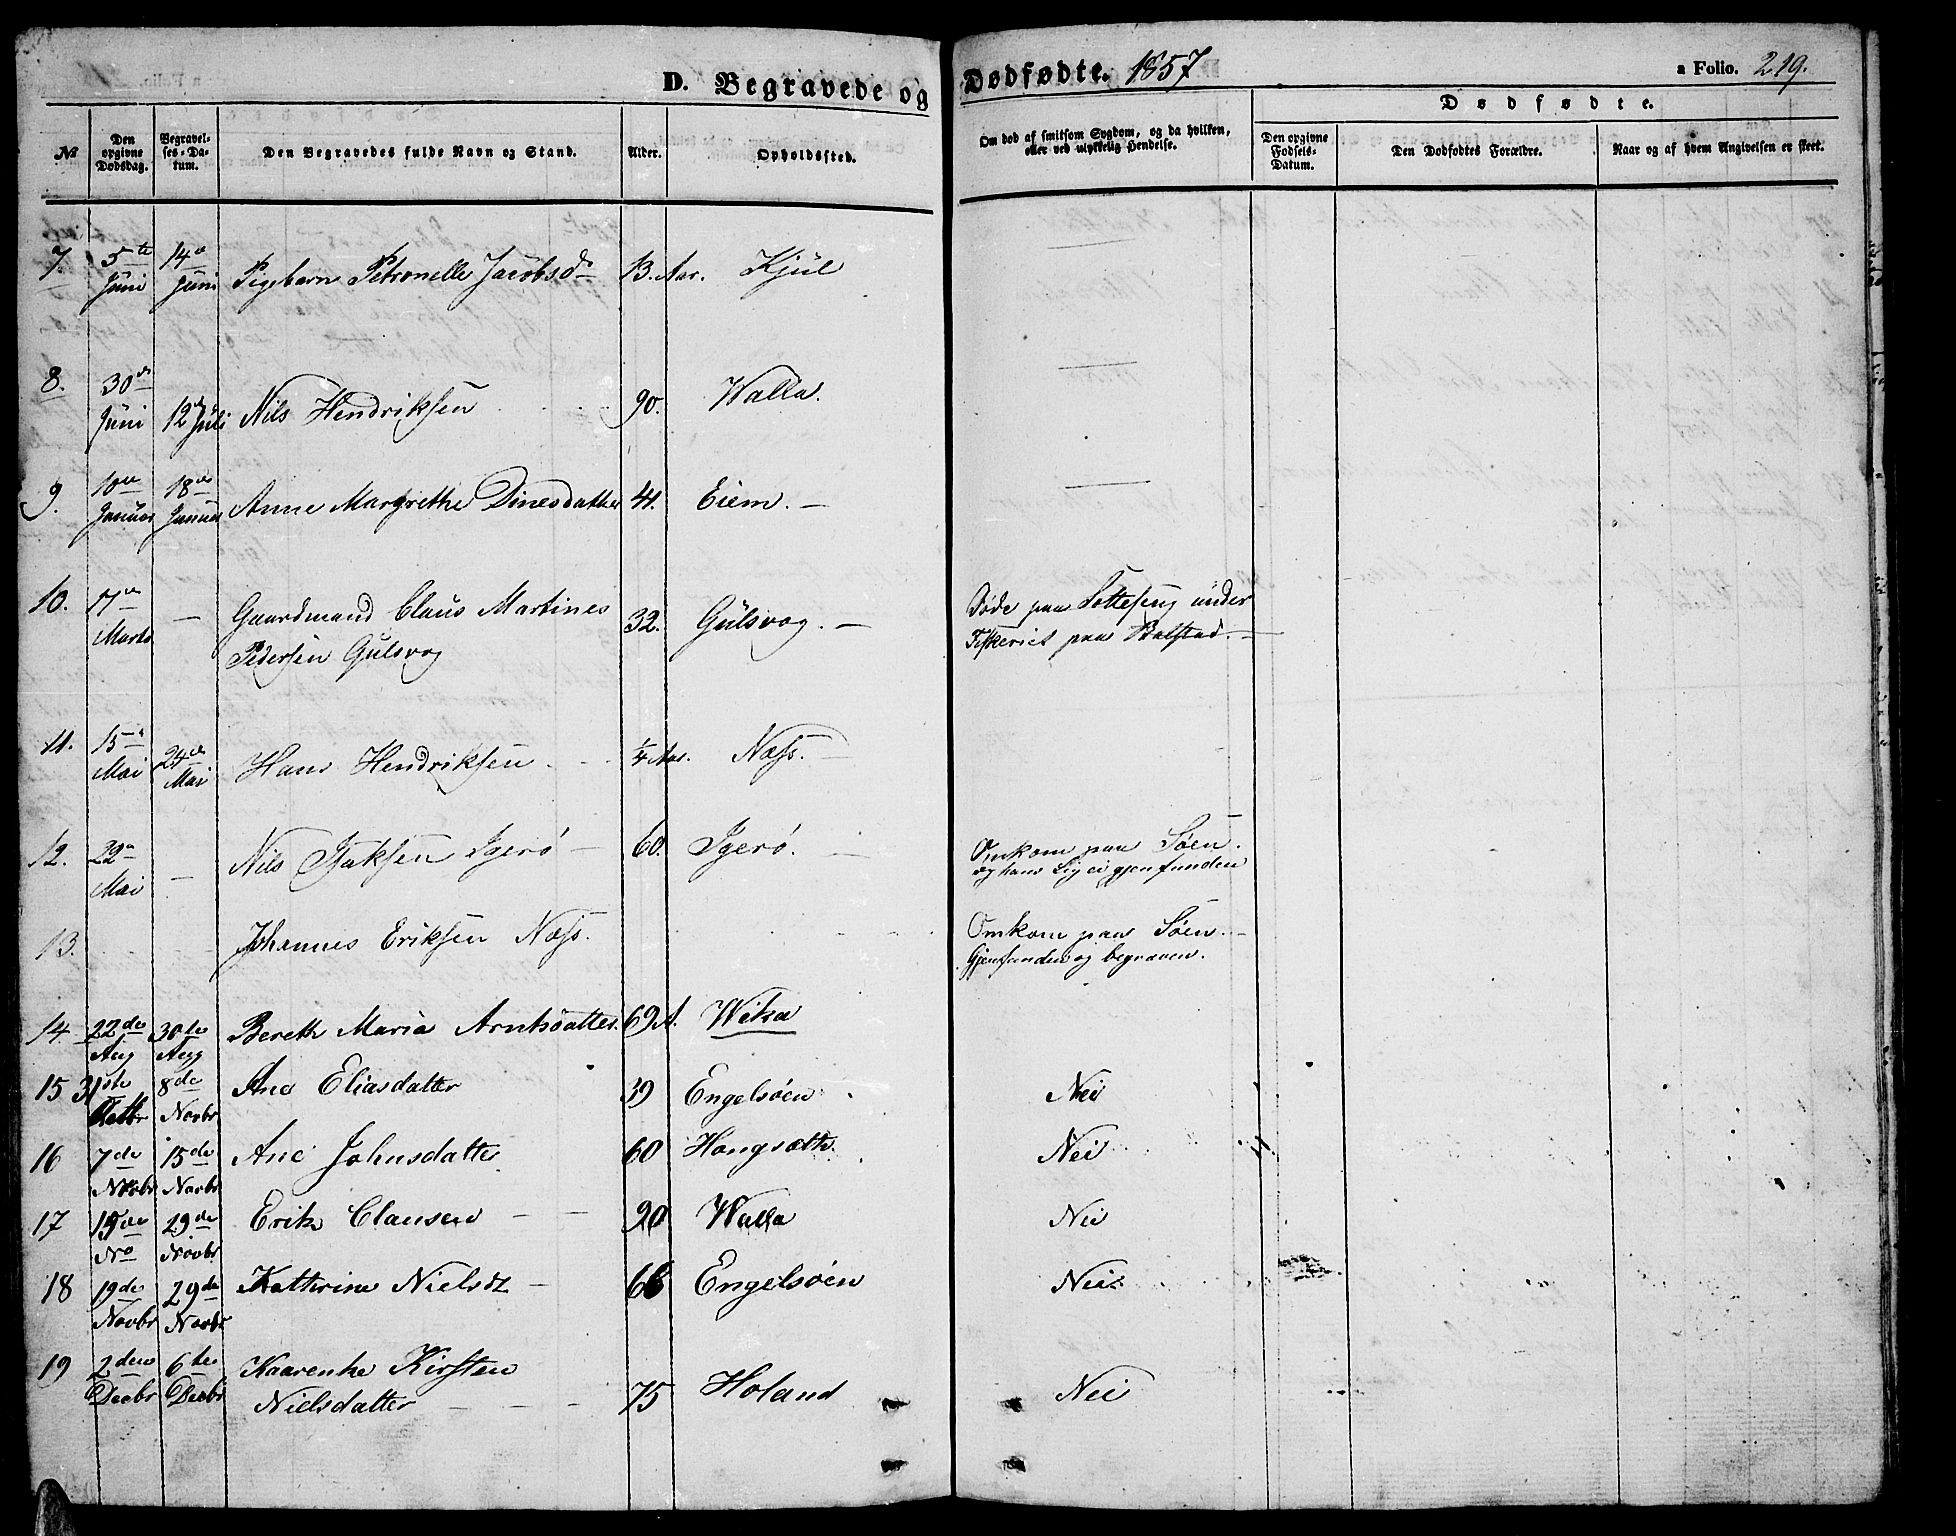 D. Begravede og Dødfødte. 1857 a Folio. 219.
Dødfødte.
No Den opgivne Dødsdag. Begravelses-Datum. Den Begravedes fulde Navn og Stand. Alder. Opholdssted. Om død af smitsom Sygdom, og da hvilken, eller ved ulykkelig Hendelse. Den opgivne Fødsels-Datum. Den Dødfødtes Forældre. Naar og af hvem Angivelsen er skeet.
7. 5te Juni 14de Juni Pigebarn Petronelle Jacobsdr 13. Aar. Kjül —
8. 30de Juni 12te Juli Nils Hendriksen 90. Walla. —
9. 10de Januar 18de Januar Anne Margrethe Dinesdatter 41. Eiem. — —
10. 17de Marts — Gaardmand Claus Martines 32. Gülsvog. — Døde paa Sotteseng under
Pedersen Gulsvog Fiskeriet paa Balstad. —
11. 15de Mai 24de Mai Hans Hendriksen ¼ Aar. Næss. —
12. 22de Mai — Nils Isaksen Igerø — 60. Igerø. — Omkom paa Søen.
og hans Lig ei gjenfunden
13. Johannes Eriksen Næss. Omkom paa Søen. —
Gjenfunden og begraven.
14 22de Aug 30te Aug Bereth Maria Arntsdatter. 69 A. Wika
15 31ste Octbr 8de Novbr Ane Eliasdatter 39 Engelsøen Nei
16 7de Novbr 15de Novbr Ane Johnsdatter 60 Hongsætth. Nei
17 15de No 29de Novbr Erik Clausen — — 90 Walla Nei
18 19de Novbr 29de Novbr Katherine Nielsdt — 66 Engelsøen Nei
19 2den Decbr 6te Decbr Kaarenke Kirsten
Nielsdatter — — — 75 Holand Nei